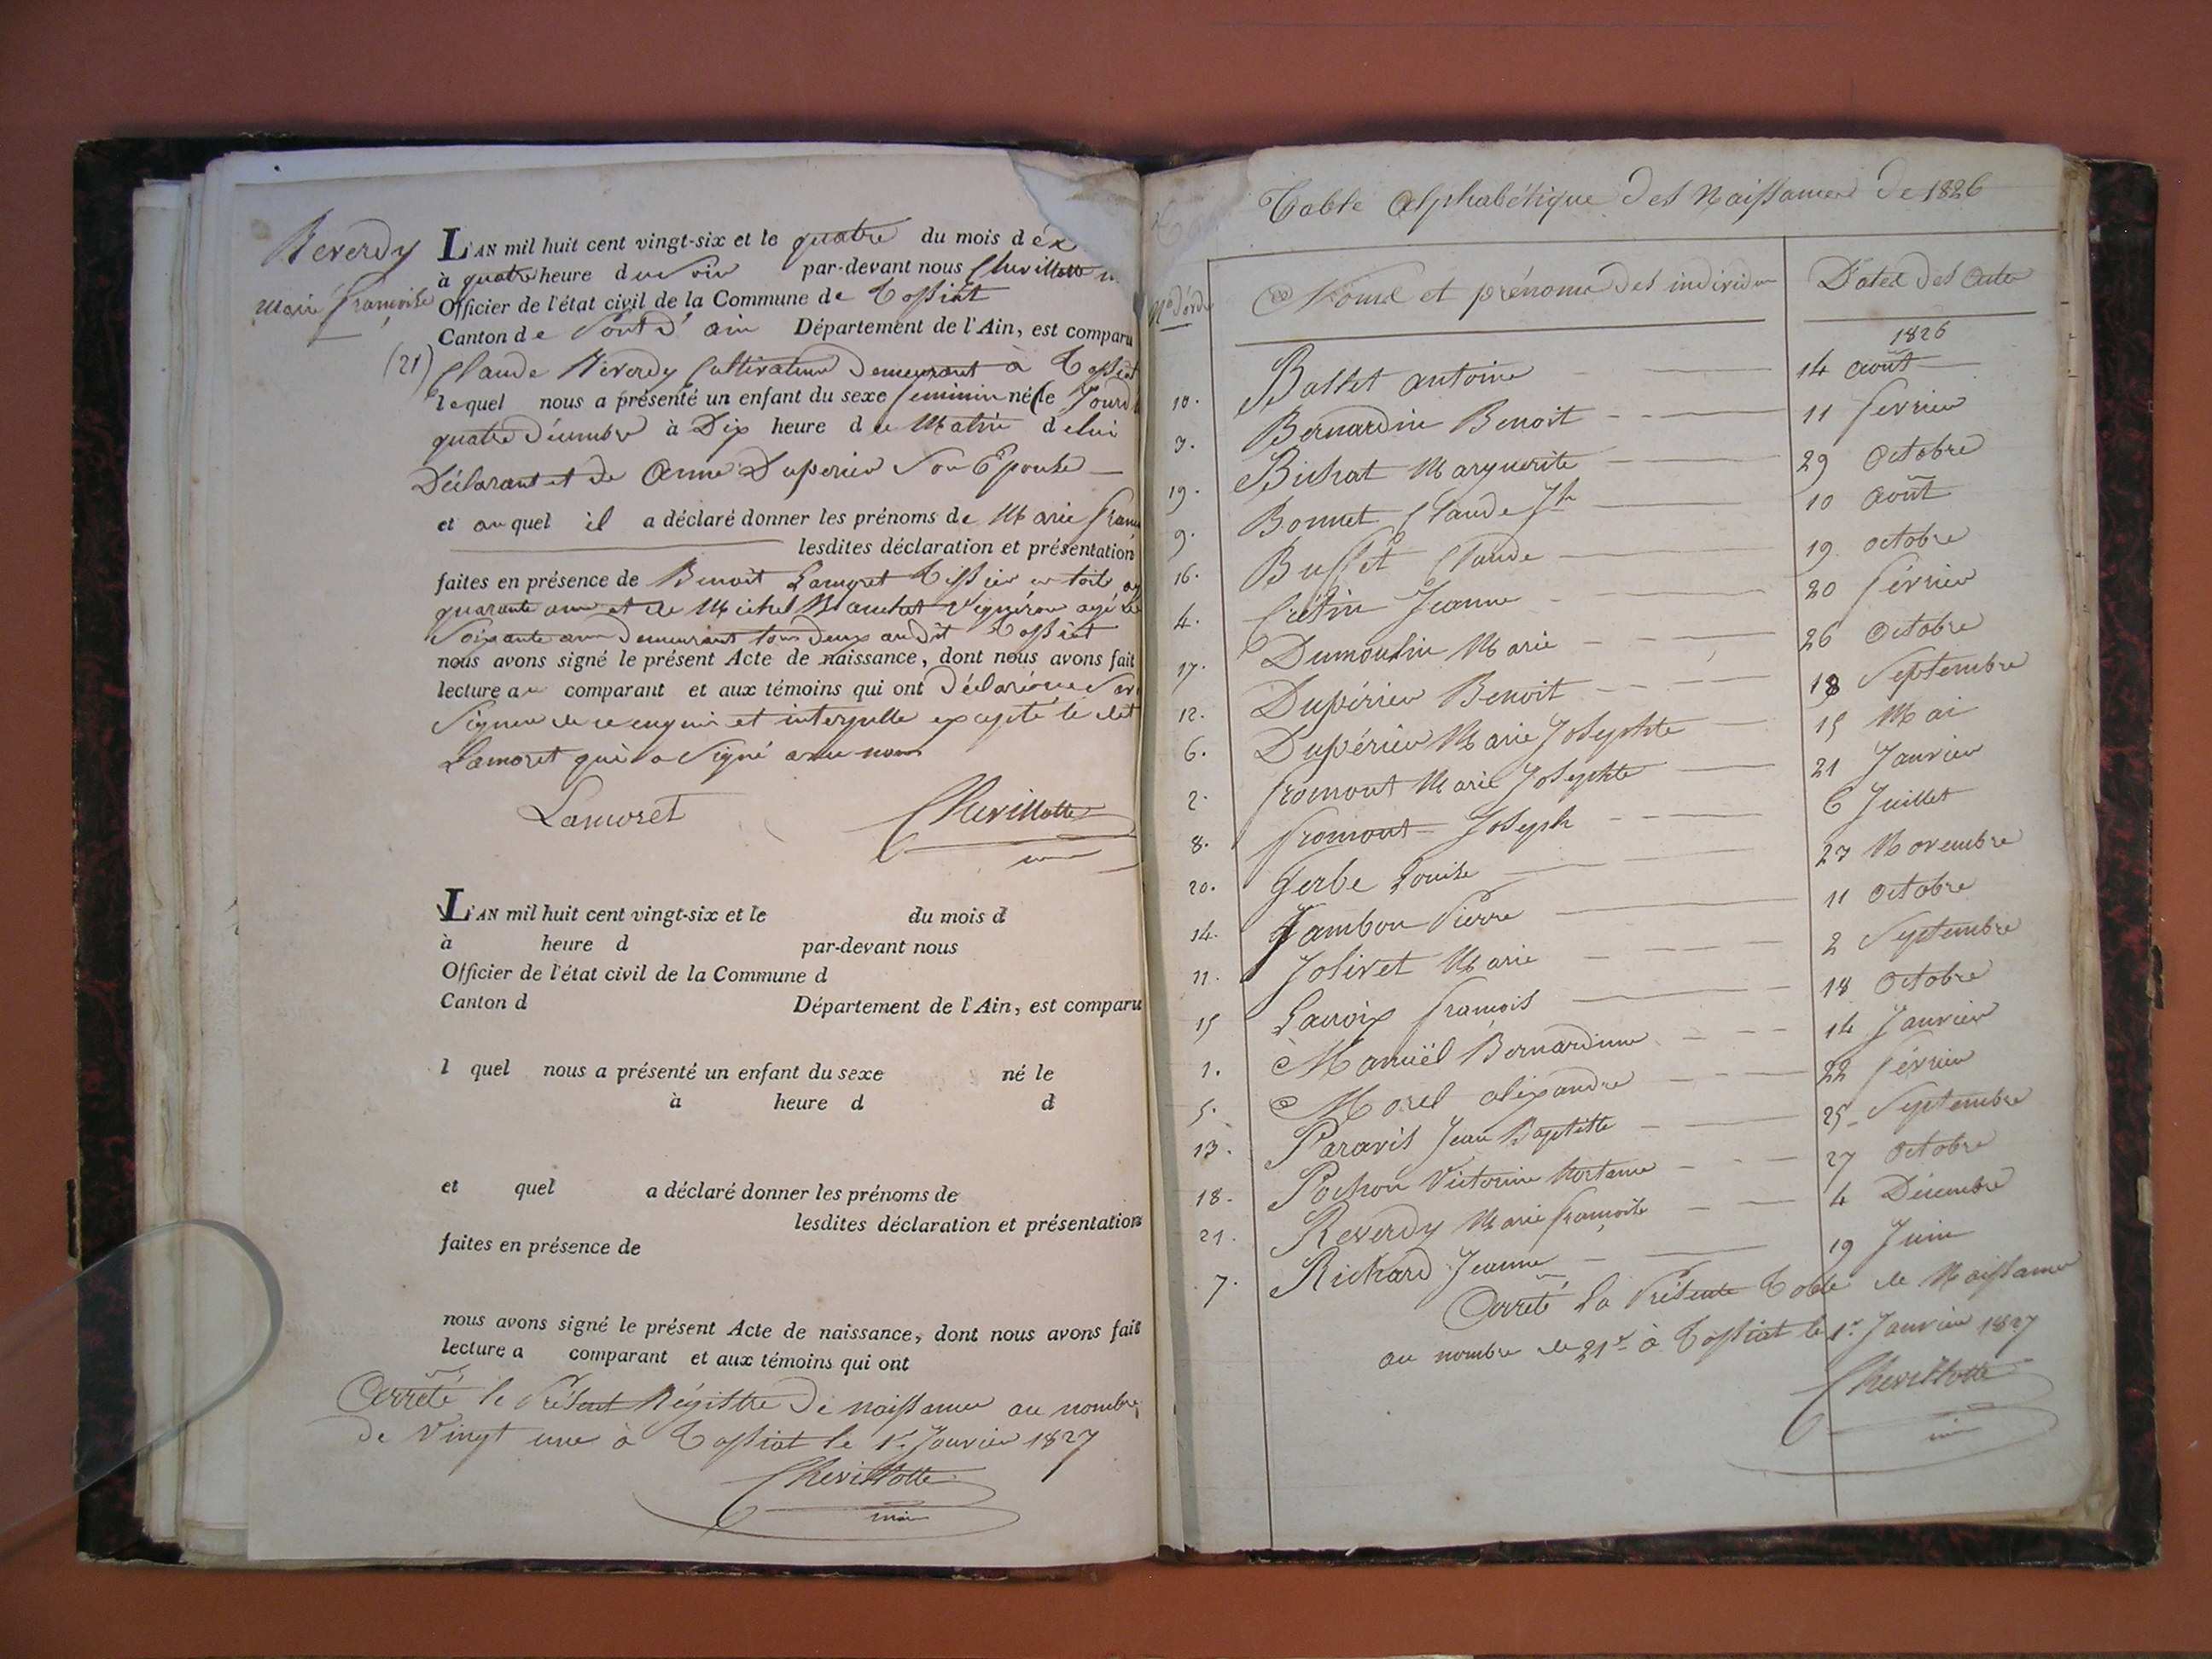 Reverdy
Marie françoise
(21)
L'AN mil huit cent vingt-six et le quatre du mois de x
à quatre heure du Soir par-devant nous Chevillotte
Officier de l'état civil de la Commune de Tossiat
Canton de Pont d'ain Département de l'Ain, est comparu
Claude Reverdy Cultivateur Demeurant à Tossiat
lequel nous a présenté un enfant du sexe feminin née le Jourd
quatre Décembre à Dix heure du Matin de lui
Déclarant et de Anne Duperier Son Epouse
et auquel il a déclaré donner les prénoms de Marie fran
lesdites déclaration et présentation
faites en présence de Benoit Lamoret Tissier en toile
quarante ans et de Michel Blanchet Vigneron agé de
Soixante ans Demeurant tous deux audit Tossiat
nous avons signé le présent Acte de naissance, dont nous avons fait
lecture au comparant et aux témoins qui ont Déclaré ne
Signer de ce enquis et interpellé excepté le dit
Lamoret qui a Signé avec nous
Lamoret Chevillotte
L'AN mil huit cent vingt-six et le du mois d
à heure d par-devant nous
Officier de l'état civil de la Commune d
Canton d Département de l'Ain, est comparu
l quel nous a présenté un enfant du sexe né le
à heure d d
et quel a déclaré donner les prénoms de
lesdites déclaration et présentation
faites en présence de
nous avons signé le présent Acte de naissance, dont nous avons fait
lecture a comparant et aux témoins qui ont
Arreté le Présent Régistre de naissances au nombre
de Vingt une à Tossiat le 1er Janvier 1827
Chevillotte
maire
Table Alphabétique des Naissances de 1826
Nos d'ordre Noms et prénoms des individus Dates des Actes
1826
10. Ballet antoine 14 Août
3. Bernardin Benoit 11 fevrier
19. Bichat Marguerite 29 Octobre
9. Bonnet Claude Jh 10 Août
16. Buffet Claude 19 octobre
4. Crétin Jeanne 20 février
17. Dumoulin Marie 26 Octobre
12. Dupérier Benoit 18 Septembre
6. Dupérier Marie Josephte 15 Mai
2. fromont Marie Josephte 21 Janvier
8. fromont Joseph 6 Juillet
20. Gerbe Louise 27 Novembre
14. Jambon Pierre 11 Octobre
11. Jolivet Marie 2 Septembre
15 Lacroix françois 18 Octobre
1. Manuël Bernardine 14 Janvier
5. Morel alexandre 22 février
13. Paravis Jean Baptiste 25 Septembre
18. Pochon Victorine hortance 27 Octobre
21. Reverdy Marie françoise 4 Décembre
7. Richard Jeanne 19 Juin
Arreté La Présente Table de Naissances
au nombre de 21 à Tossiat le 1er Janvier 1827
Chevillotte